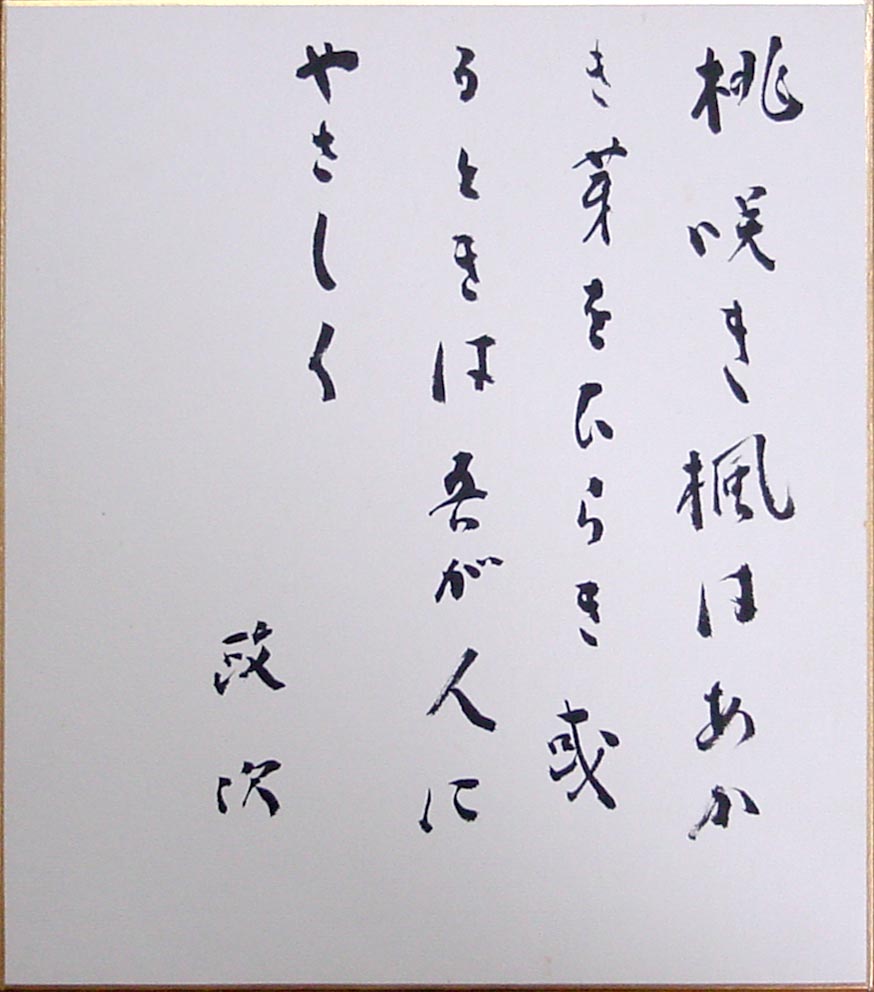 桃咲き楓はあか
き芽をひらき或
るときは吾が人に
やさしく
政次